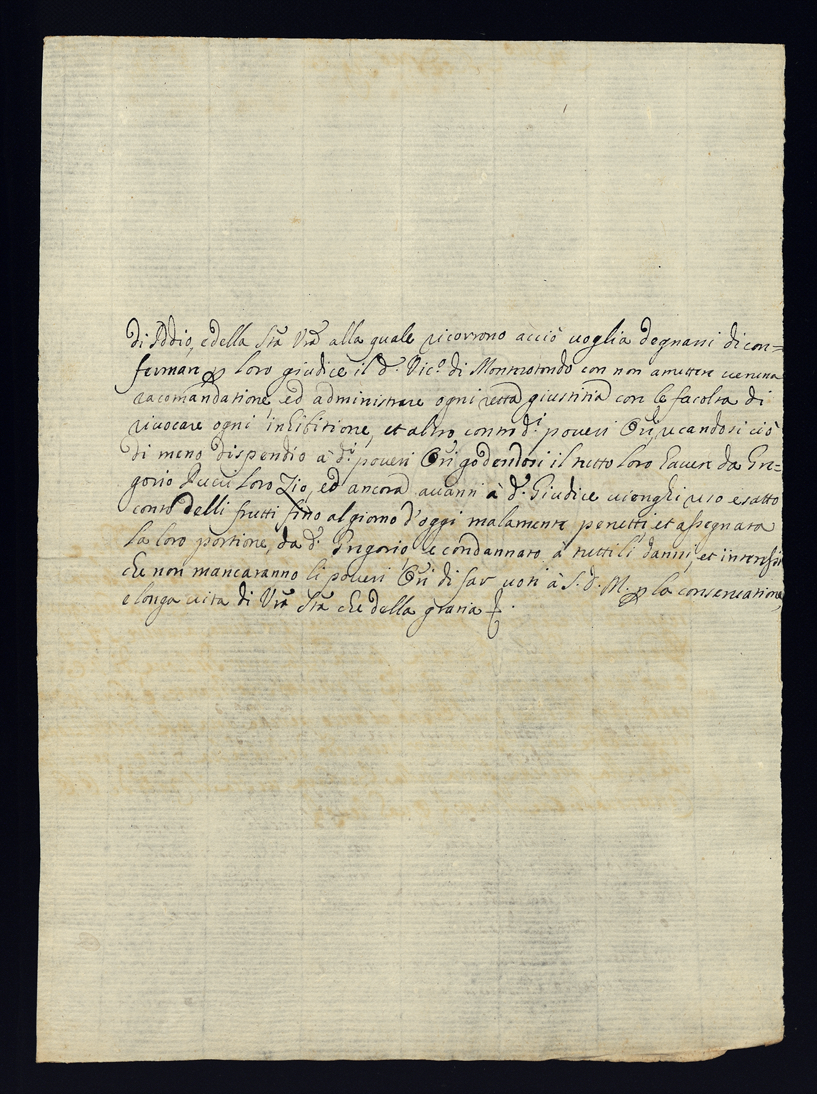 di Iddio, e della Sta Vra alla quale ricorrono acciò voglia degnarsi di con=
fermare p loro giudice il do. Vico. di Monterotondo con non amettere veruna
racomandatione ed administrare ogni retta giustitia con le facoltà di
rivocare ogni inhibitione, et altro contro di. poveri Ori, recandosi ciò
di meno dispendio à di. poveri Ori godendosi il tutto loro havere da Gre=
gorio loro Zio, ed ancora avanti à do. Giudice venghi reso esatto
conto delli frutti fino al giorno d'oggi malamente percetti et assegnata
la loro portione, da do. Gregorio e condannato à tutti li danni, et interessi
che non mancaranno li poveri Ori di far voti à S. D. M. p la conservatione,
e longa vita di Vra Sta che della gratia